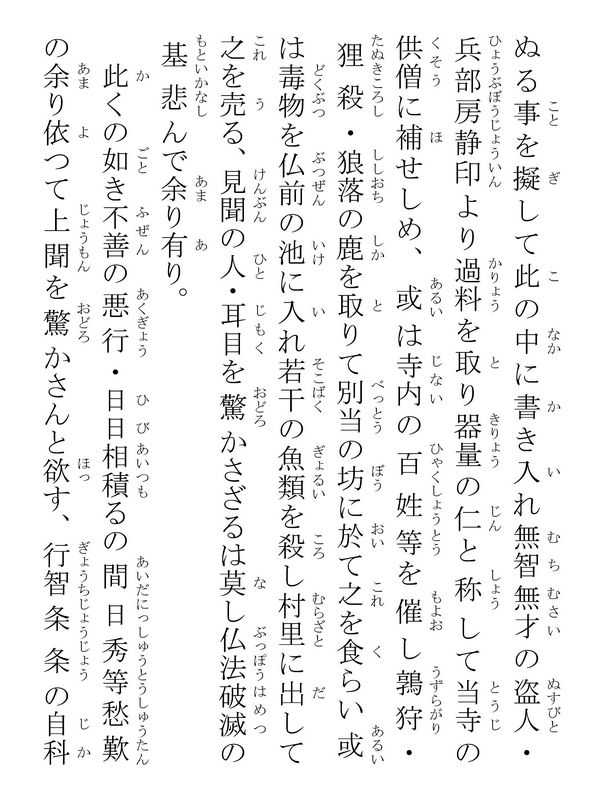 ぬる事を擬して此の中に書き入れ無智無才の盗人・
兵部房静印より過料を取り器量の仁と称して当寺の
供僧に補せしめ、或は寺内の百姓等を催し鶉狩・
狸殺・狼落の鹿を取りて別当の坊に於て之を食らい或
は毒物を仏前の池に入れ若干の魚類を殺し村里に出して
之を売る、見聞の人・耳目を驚かさざるは莫し仏法破滅の
基悲んで余り有り。
此くの如き不善の悪行・日日相積るの間日秀等愁歎
の余り依つて上聞を驚かさんと欲す、行智条条の自科